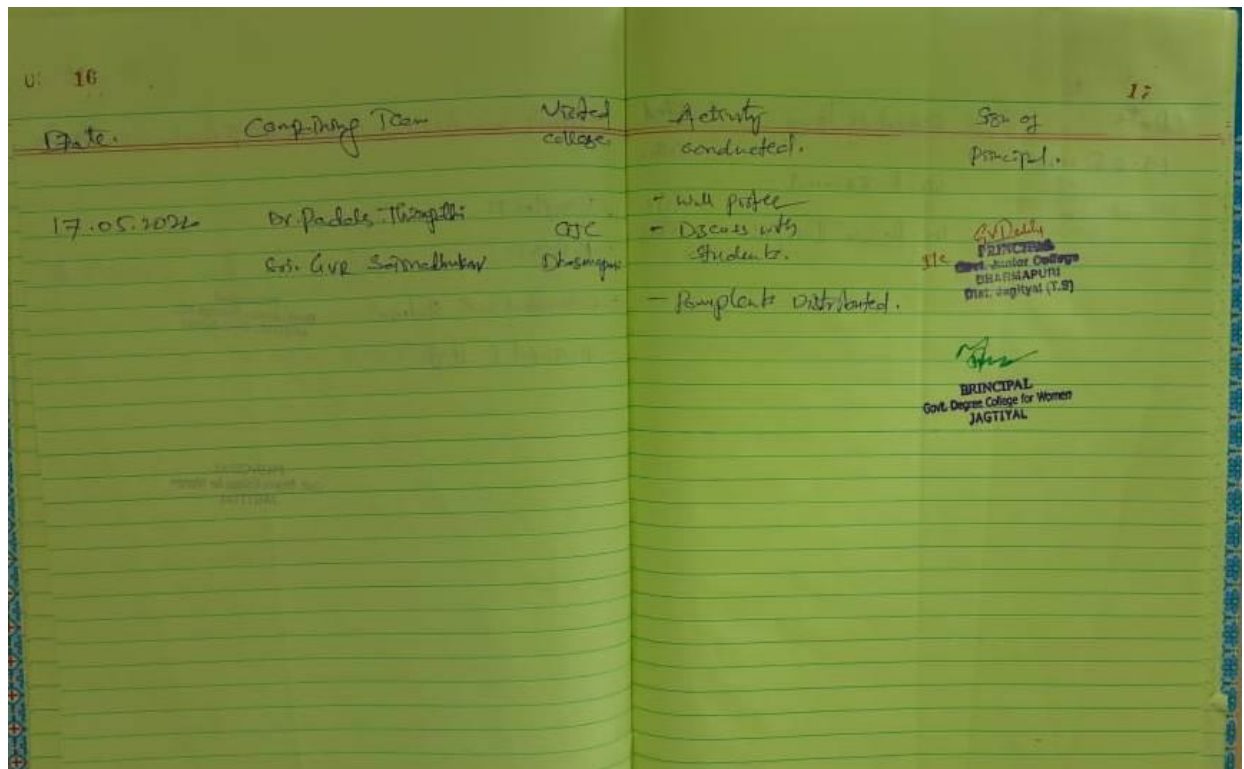 16
17
Date. Team Visited college Activity conducted. Sign of Principal.
17.05.2022 Dr. Padala Thirupathi GJC Dharmapuri - Wall poster
Sri. GVR Saimadhukar - Discuss with Students.
- Pamplents Distributed.
I/c
PRINCIPAL
Govt. Junior College
DHARMAPURI
Dist. Jagityal (T.S)
PRINCIPAL
Govt. Degree College for Women
JAGTIYAL